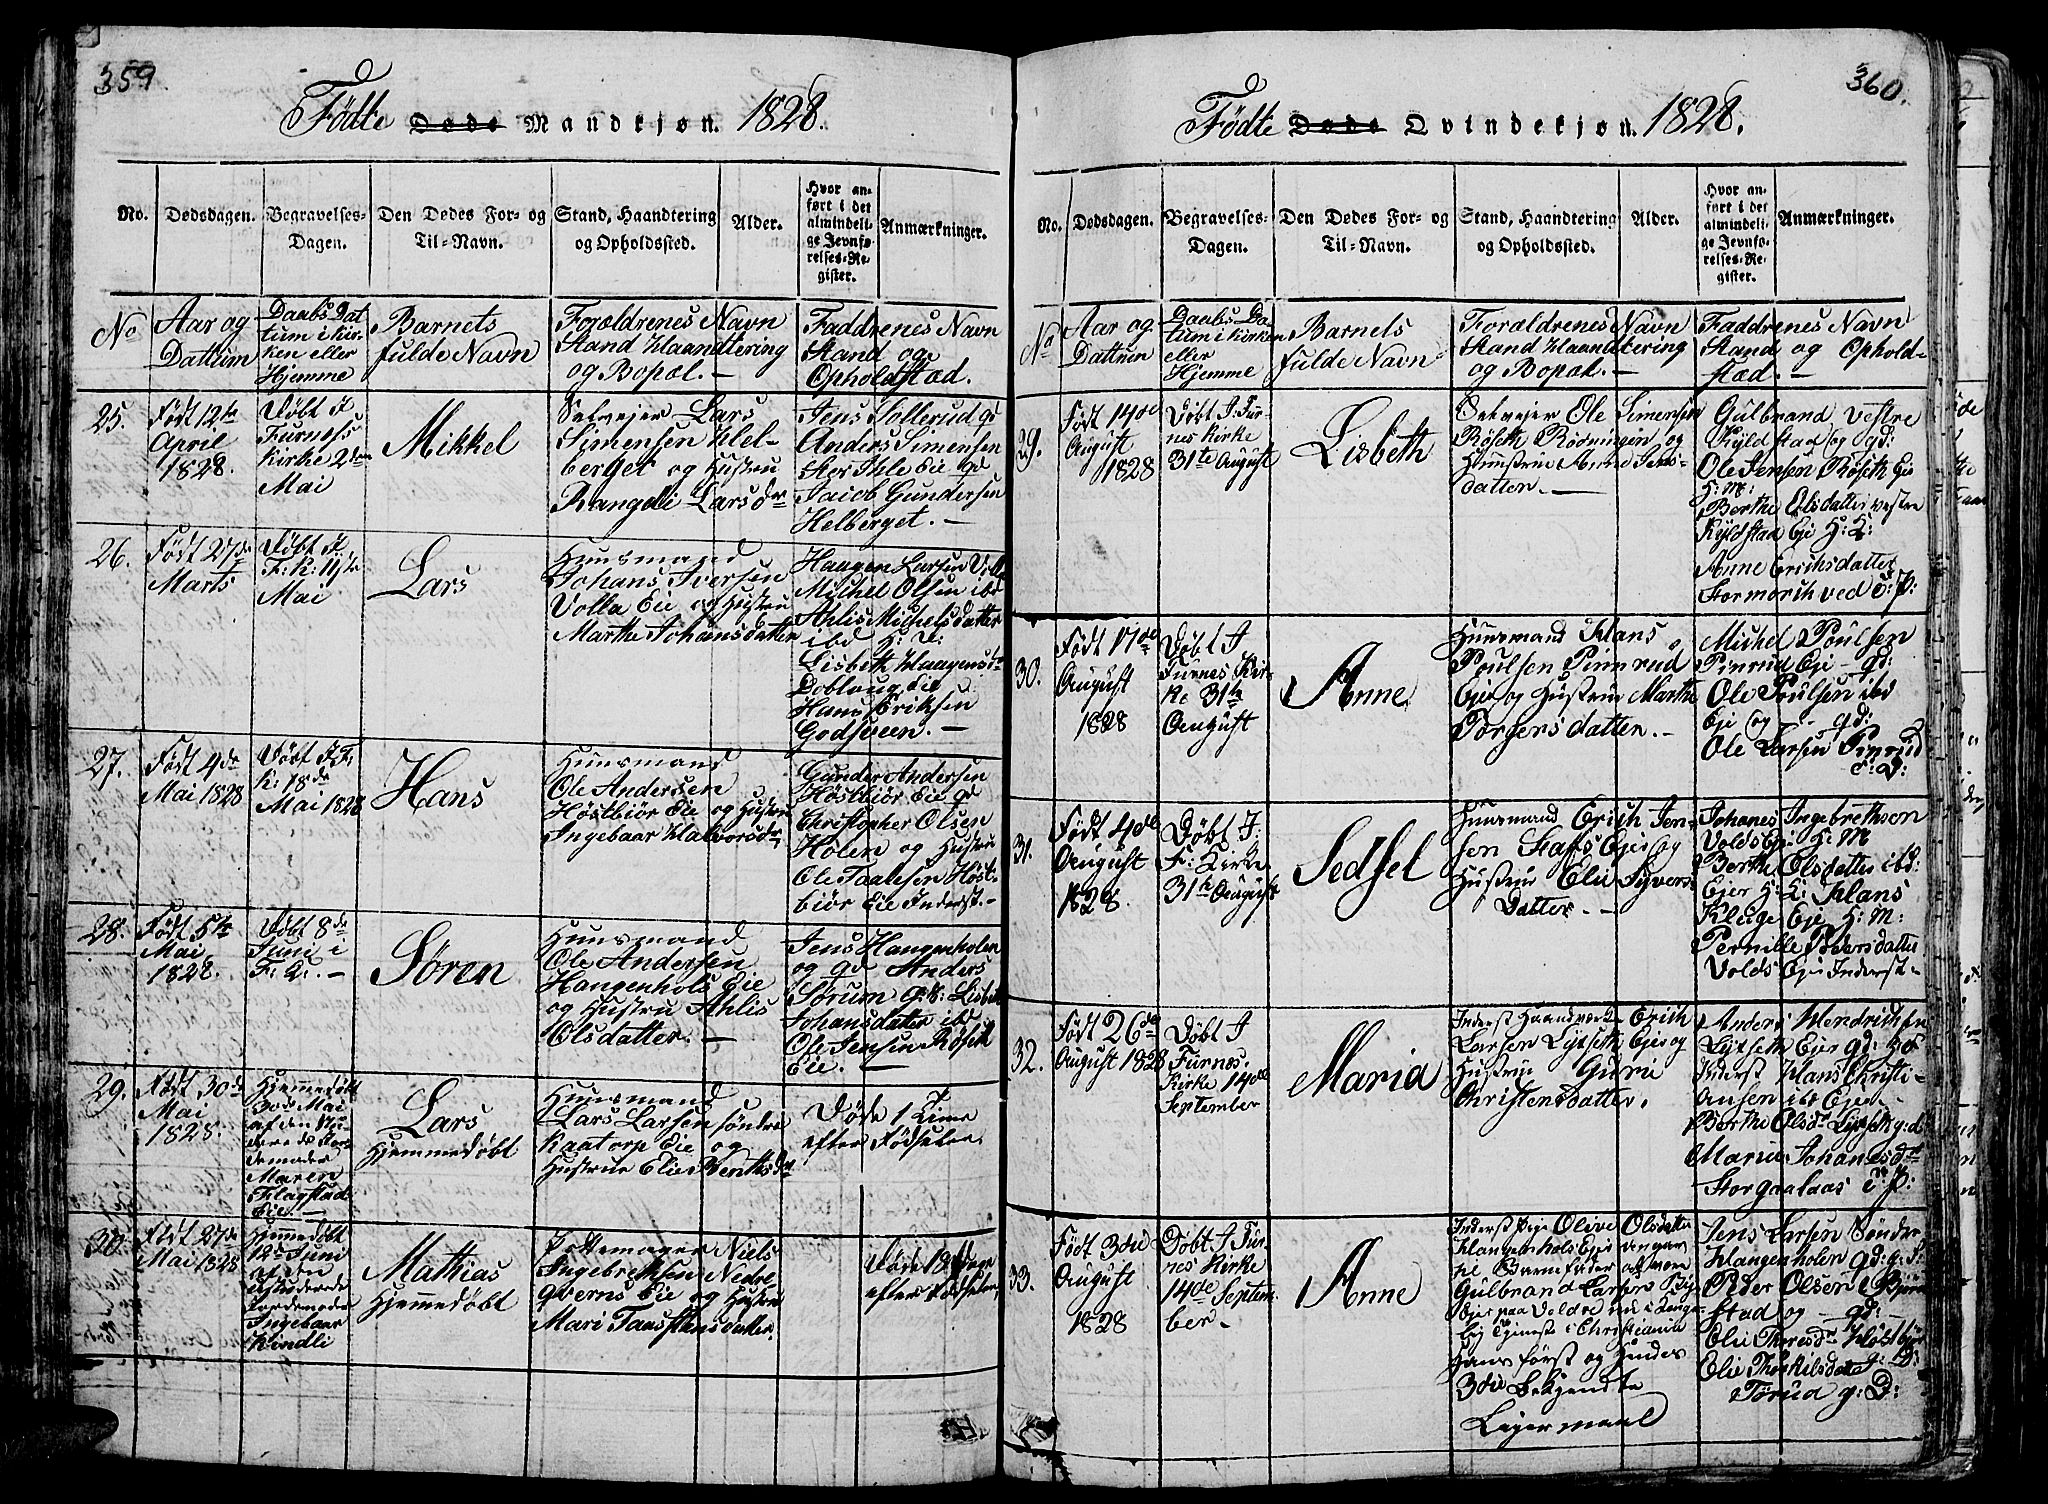 359.
Fødte Døde Mandkjøn. 1828.
No.
Dødsdagen.
Begravelses-
Dagen.
Den Dødes For- og
Til-Navn.
Stand, Haandtering
og Opholdssted.
Alder.
Hvor an-
ført i det
almindeli-
ge Jevnfø-
relses-Re-
gister.
Anmærkninger.
No
Aar og
Dattum
Daabs Dat
tum i Kir-
ken eller
Hjemme
Barnets
fulde Navn
Forældrenes Navn
Stand Haandtering
og Bopæl. —
Faddrenes Navn
Stand og
Opholdstæd.
25.
Født 12te
April
1828.
Døbt I
Furness
Kirke 2den
Mai
Mikkel
Selvejer Lars
Simensen Hel-
berget og Hustru
Rangdi Larsdr
Jens Sollerud gd
Anders Simensen
Stor Ihle Eie gd
Jacob Gundersen
Helberget. —
26.
Født 27de
Marts
Døbt I
F: K: 11te
Mai
Lars
Huusmand
Johans Iversen
Volla Eie og Hustru
Marthe Johansdatter
Haagen Larsen
Michel Olsen ibd
Ahlis Michelsdatter
ibd H: D:
Lisbeth Haagensd
Doblaug Eie
Hans Eriksen
Godsveen. —
27.
Født 4de
Mai 1828
Døbt I F:
K: 18de
Mai 1828
Hans
Huusmand
Ole Andersen
Høstbiør Eie og Hustru
Ingebaar Halvorsdr
Gunder Andersen
Høstbiør Eie gd
Christopher Olsen
Holen og Hustru
Ole Taalesen Høst-
biør Eie Inderst. —
28.
Født 5te
Mai
1828.
Døbt 8de
Juni i
F: K: —
Søren
Huusmand
Ole Andersen
Hangenhols Eie
og Hustru Ahlis
Olsdatter. —
Jens Hangenholen
og gd Anders
Sørum G: K: Lisbet
Johansdatter ibd
Ole Jensen Røseth
Eie. —
29.
Født 30de
Mai
1828.
Hjemedøbt
Mai
af den
Maren
Flagstad
Eie. —
Lars
Hjemmedøbt
Huusmand
Lars Larsen søndre
Kaatorp Eie og
Hustrue Elie Benthsdr
Døde 1 Time
efter Fødselen
30.
Født 27de
Mai 1828
Hjemmedøbt
Juni
af den
Ingebaar
Kindli
Mathias
Hjemmedøbt
Pottemager Niels
Ingebrethsen Nedre
Qverns Eie og Hustru
Mari
Døde
efter Fødselen
360.
Fødte Døde Qvindekjøn. 1828.
No.
Dødsdagen.
Begravelses-
Dagen.
Den Dødes For- og
Til-Navn.
Stand, Haandtering
og Opholdssted.
Alder.
Hvor an-
ført i det
almindeli-
ge Jevnfø-
relses-Re-
gister.
Anmærkninger.
No
Aar og
Dattum
Daabs Da-
tum i Kirken
eller
Hjemme
Barnets
fulde Navn
Forældrenes Navn
Stand Haandtering
og Bopæl. —
Faddrenes Navn
Stand og Ophold-
stæd. —
29.
Født 14de
August
1828
Døbt I: Fur-
nes Kirke
31te August
Lisbeth
Selvejer Ole Simensen
Røseth Rødningen og
Hustrue Anne Jens-
datter. —
Gulbrand Vestre
Kyldstad og gd:
Ole Jensen Røseth Eie
H: M:
Berthe Olsdatter vestre
Kyldstad Eje H: K:
Anne Erichsdatter
Stormorch ved S: P:
30.
Født 17de
August
1828
Døbt I
Furnes Kir-
ke 31te
August
Anne
Huusmand Hans
Poulsen Pinrud
Eje og Hustrue Marthe
Torgersdatter. —
Michel Poulsen
Pinrud Eje — gd:
Ole Poulsen ibd
Eje og — gd:
Ole Larsen Pinrud
S: D:
31.
Født 4de
August
1828.
Døbt I:
F: Kirke
31te August
Sedsel
Huusmand Erich Jen-
sen Stafs Eje og
Hustrue Elie Syvers
Datter. —
Johanes Ingebrethsen
Volds Eje H: M
Berthe Olsdatter ibd:
Ejer H: K: Hans
Kluge Eje H: M:
Pernille Pedersdatter
Volds Eje Inderst —
32.
Født 26de
August 1828
Døbt I
Furnes
Kirke 14de
September
Maria
Inderst Haandværk Erich
Larsen Lydseth Eje og
Hustrue Gurie
Christensdatter.
Anders Hendrichsen
Lydseth Eje gd:
Inderst Hans Christi-
ansen ibd Eje —
Berthe Olsdr Lydseth gd
Maria Johanesdr
Storgaalaas S: P:
33.
Født 3die
August
1828
Døbt I Fur-
nes Kirke
14de Septem-
ber —
Anne
Inderst Pige Olive Olsdatter
Hangenhols Ejer
Barnefader
Gulbrand Larsen
Ejer paa Voldre nu i
Tjeneste i Christiania
Hans først og Hendes
3die Bekjendte
Lejermaal
Jens Larsen Søndre
Hangenholen gd: g: I:
Peder Olsen Bjørn
stad og — gd:
Olie Høstbjør
Elie Thorkilsdatter
Torud g: D: